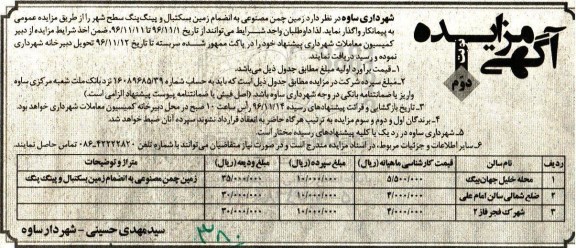 آگهی مزایده
نوبت دوم
شهرداری ساوه در نظر دارد زمین چمن مصنوعی به انضمام زمین بسکتبال و پینگ پنگ سطح شهر را از طریق مزایده عمومی
به پیمانکار واگذار نماید. لذا داوطلبان واجد شرایط می‌توانند از تاریخ ۹۶/۱۱/۱ تا ۹۶/۱۱/۱۱ ضمن اخذ شرایط مزایده از دبیر
کمیسیون معاملات شهرداری پیشنهاد خود را در پاکت ممهور شده سربسته تا تاریخ ۹۶/۱۱/۱۲ تحویل دبیرخانه شهرداری
نموده و رسید دریافت نمایند.
۱-قیمت برآورد اولیه مبلغ مطابق جدول ذیل می‌باشد.
۲-مبلغ سپرده شرکت در مزایده مطابق جدول ذیل است که باید به حساب شماره ۱۶۰۸۹۶۸۵/۳۹ نزد بانک ملت شعبه مرکزی ساوه
واریز یا ضمانتنامه بانکی در وجه شهرداری ساوه باشد. (اصل فیش یا ضمانتنامه پیوست پیشنهاد الزامی است)
۳-تاریخ بازگشایی و قرائت پیشنهادهای رسیده ۹۶/۱۱/۱۴ رأس ساعت ۱۰ صبح در محل دبیرخانه کمیسیون معاملات شهرداری خواهد بود.
۴-برندگان اول و دوم و سوم مزایده به ترتیب هرگاه حاضر به انعقاد قرارداد نشوند سپرده آنان ضبط خواهد شد.
۵-شهرداری ساوه در رد یک یا کلیه پیشنهادهای رسیده مختار است.
۶-سایر اطلاعات و جزئیات مربوط، در اسناد مزایده مندرج است و در صورت نیاز متقاضیان می‌توانند با شماره تلفن ۴۲۲۲۲۸۲۰-۰۸۶ تماس حاصل نمایند.
ردیف نام سالن قیمت کارشناسی ماهیانه (ریال) مبلغ سپرده (ریال) مبلغ ودیعه (ریال) متراژ و توضیحات
۱ محله خلیل جهان بیگ ۵/۵۰۰/۰۰۰ ۱۰/۰۰۰/۰۰۰ ۳۵/۰۰۰/۰۰۰ زمین چمن مصنوعی به انضمام زمین بسکتبال و پینگ پنگ
۲ ضلع شمالی سالن امام علی ۴/۰۰۰/۰۰۰ ۱۰/۰۰۰/۰۰۰ ۳۰/۰۰۰/۰۰۰
۳ شهرک فجر فاز ۲ ۴/۰۰۰/۰۰۰ ۱۰/۰۰۰/۰۰۰ ۳۰/۰۰۰/۰۰۰
سیدمهدی حسینی - شهردار ساوه
۳۸۰